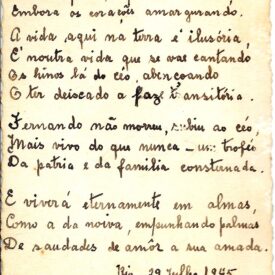 Embora os corações amargurando.
A vida aqui na terra é ilusória,
É noutra vida que se vae cantando
Os hinos lá do céo, abençoando
O ter deixado a faze transitória.
Fernando não morreu, subiu ao céo,
Mais vivo do que nunca — um troféo
Da patria e da familia consternada.
E viverá eternamente em almas,
Como a da noiva, empunhando palmas
De saudades de amôr a sua amada.
Rio, 29 Julho 1945